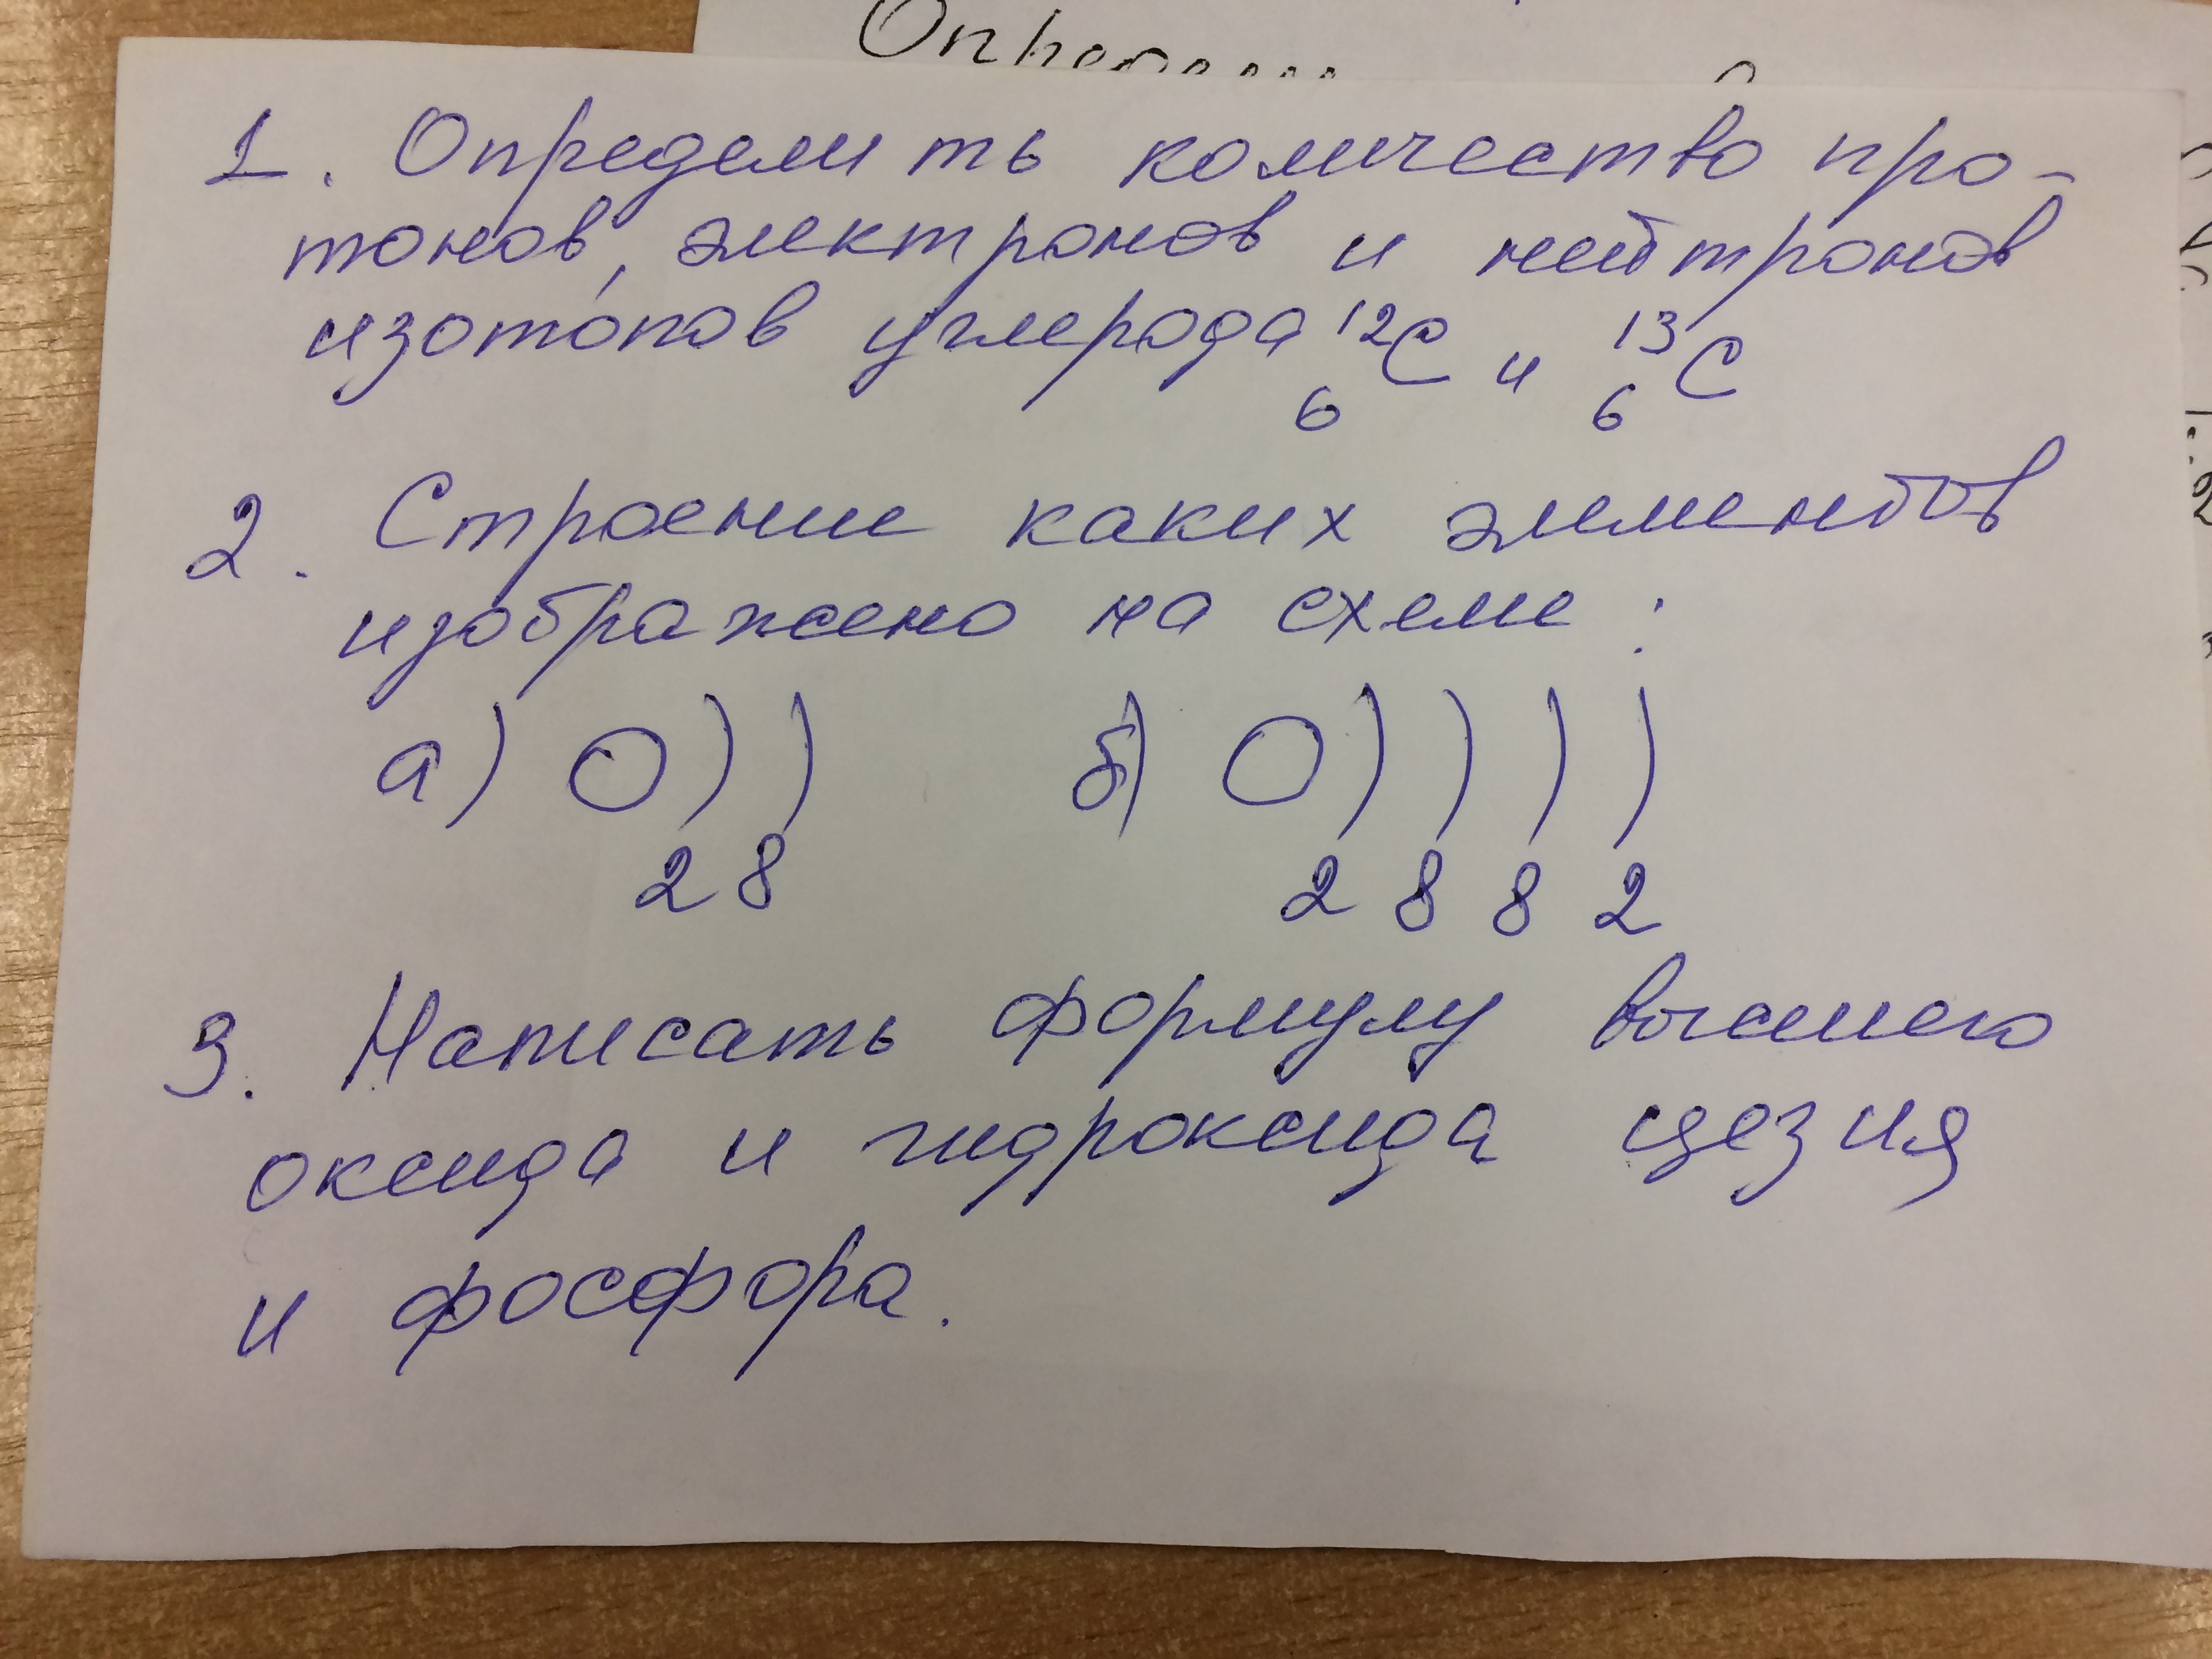 1. Определить количество про-
тонов, электронов и нейтронов
изотопов углерода ¹²₆C и ¹³₆C
2. Строение каких элементов
изображено на схеме:
а) O)) б) O))))
2 8 2 8 8 2
3. Написать формулу высшего
оксида и гидроксида цезия
и фосфора.